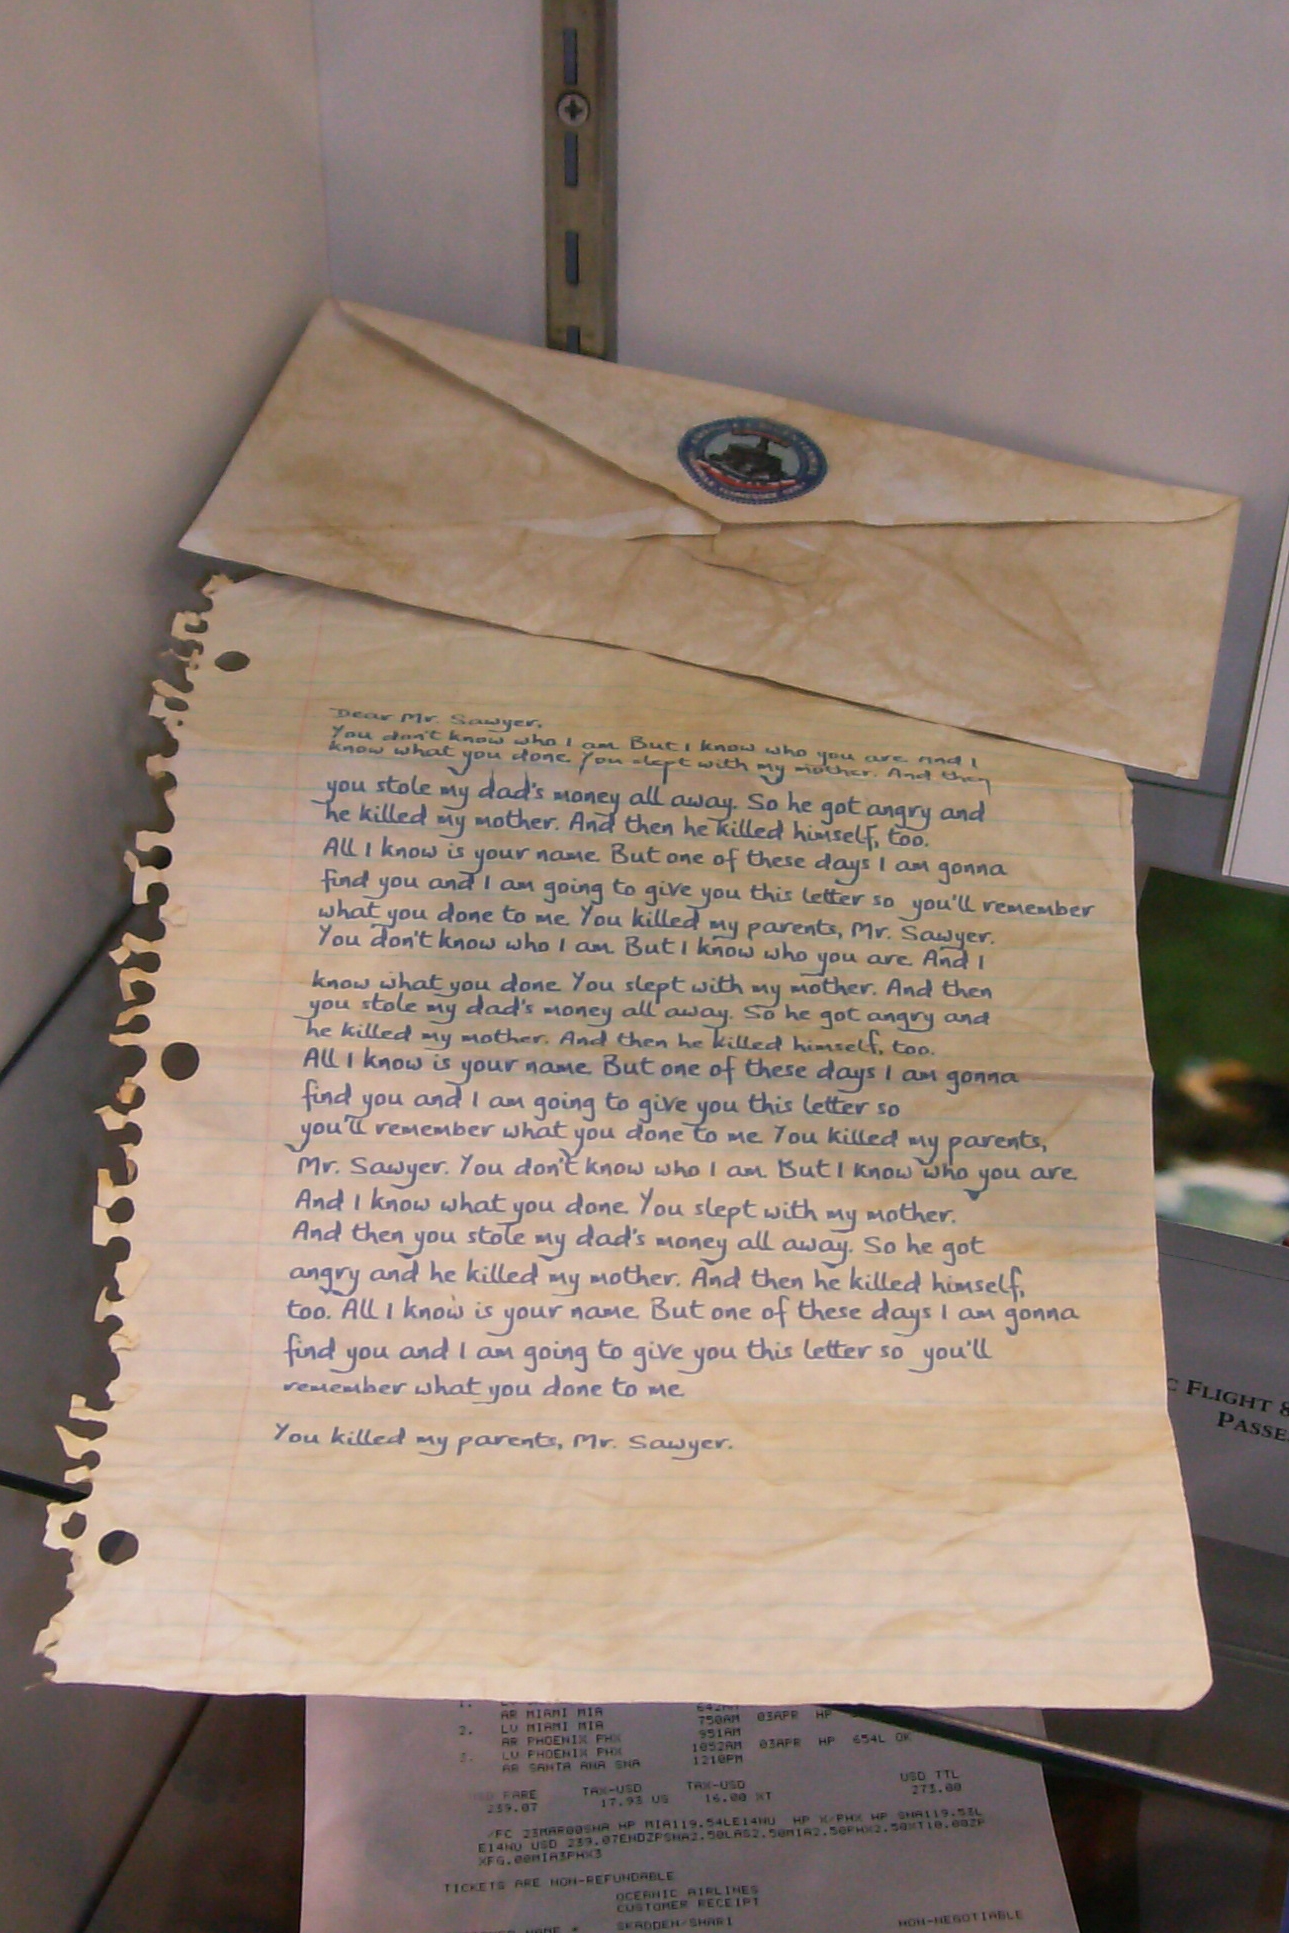 Dear Mr. Sawyer,
You don't know who I am. But I know who you are. And I
know what you done. You slept with my mother. And then
you stole my dad's money all away. So he got angry and
he killed my mother. And then he killed himself, too.
All I know is your name. But one of these days I am gonna
find you and I am going to give you this letter so you'll remember
what you done to me. You killed my parents, Mr. Sawyer.
You don't know who I am. But I know who you are. And I
know what you done. You slept with my mother. And then
you stole my dad's money all away. So he got angry and
he killed my mother. And then he killed himself, too.
All I know is your name. But one of these days I am gonna
find you and I am going to give you this letter so
you'll remember what you done to me. You killed my parents,
Mr. Sawyer. You don't know who I am. But I know who you are.
And I know what you done. You slept with my mother.
And then you stole my dad's money all away. So he got
angry and he killed my mother. And then he killed himself,
too. All I know is your name. But one of these days I am gonna
find you and I am going to give you this letter so you'll
remember what you done to me.
You killed my parents, Mr. Sawyer.
C FLIGHT 8
PASSE
1.
AR MIAMI MIA 750AM 03APR HP
2. LV MIAMI MIA 951AM
AR PHOENIX PHX 1052AM 03APR HP 654L OK
3. LV PHOENIX PHX 1210PM
AR SANTA ANA SNA
FARE TAX-USD TAX-USD USD TTL
239.07 17.93 US 16.00 XT 273.00
/FC 23MAR00SNA HP MIA119.54LE14NU HP X/PHX HP SNA119.53L
E14NU USD 239.07ENDZPSNA2.50LAS2.50MIA2.50PHX2.50XT10.00ZP
XFG.00MIA3PHX3
TICKETS ARE NON-REFUNDABLE
OCEANIC AIRLINES
CUSTOMER RECEIPT
NAME * SKADDEN/SHARI NON-NEGOTIABLE